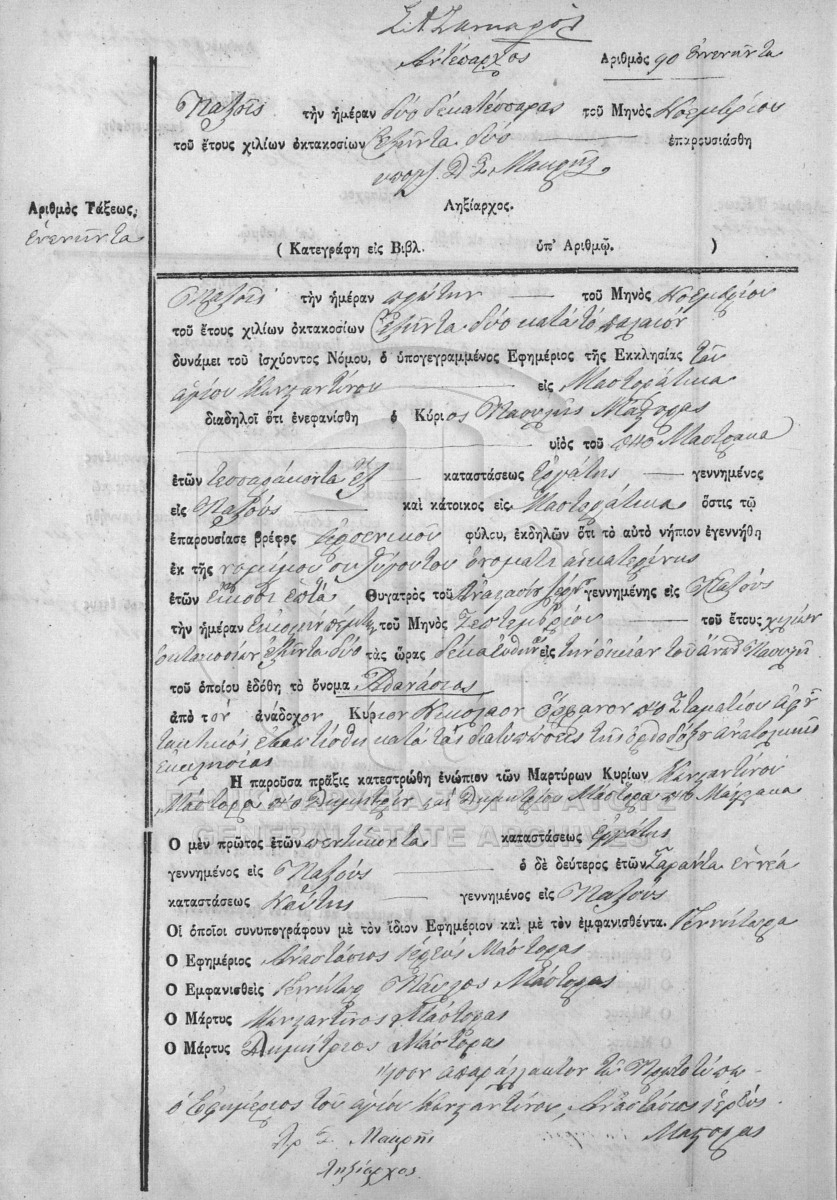 Ἀντέπαρχος
Ἀριθμὸς 90 ἐννενῆντα
Παξοῖς τὴν ἡμέραν δύο δέκα τέσσαρας τοῦ Μηνὸς Νοεμβρίου
τοῦ ἔτους χιλίων ὀκτακοσίων ἑξῆντα δύο ἐπαρουσιάσθη
Μακρῆς
Ληξίαρχος.
Ἀριθμὸς Τάξεως,
ἐνενῆντα
( Κατεγράφη εἰς Βιβλ. ὑπ' Ἀριθμῷ. )
Παξοῖς τὴν ἡμέραν πρώτην τοῦ Μηνὸς Νοεμβρίου
τοῦ ἔτους χιλίων ὀκτακοσίων ἑξῆντα δύο κατὰ τὸ παλαιόν
δυνάμει τοῦ ἰσχύοντος Νόμου, ὁ ὑπογεγραμμένος Ἐφημέριος τῆς Ἐκκλησίας τοῦ
ἁγίου Κωνσταντίνου εἰς Μαστοράτικα
διαδηλοῖ ὅτι ἐνεφανίσθη ὁ Κύριος Μάστορας
υἱὸς τοῦ ποτὲ
ἐτῶν τεσσαράκοντα ἕξ καταστάσεως ἐργάτης γεννημένος
εἰς Παξοὺς καὶ κάτοικος εἰς Μαστοράτικα ὅστις τῷ
ἐπαρουσίασε βρέφος ἀρσενικοῦ φύλου, ἐκδηλῶν ὅτι τὸ αὐτὸ νήπιον ἐγεννήθη
ἐκ τῆς νομίμου συζύγου του ὀνόματι αἰκατερίνης
ἐτῶν εἴκοσι ἑπτά Θυγατρὸς τοῦ γεννημένης εἰς Παξοὺς
τὴν ἡμέραν τοῦ Μηνὸς Σεπτεμβρίου τοῦ ἔτους χιλίων
ὀκτακοσίων ἑξῆντα δύο τὰς ὥρας εἰς τὴν οἰκίαν τοῦ
τοῦ ὁποίου ἐδόθη τὸ ὄνομα Ἀθανάσιος
ἀπὸ τὸν ἀνάδοχον Κύριον Νικόλαον ποτὲ Σταματίου
ἐβαπτίσθη κατὰ τὰς διατυπώσεις τῆς ὀρθοδόξου ἀνατολικῆς
ἐκκλησίας
Ἡ παροῦσα πρᾶξις κατεστρώθη ἐνώπιον τῶν Μαρτύρων Κυρίων Κωνσταντίνου
Μάστορα ποτὲ Δημητρίου καὶ Δημητρίου Μάστορα ποτὲ
Ὁ μὲν πρῶτος ἐτῶν πεντήκοντα καταστάσεως ἐργάτης
γεννημένος εἰς Παξοὺς ὁ δὲ δεύτερος ἐτῶν σαράντα ἐννέα
καταστάσεως ναύτης γεννημένος εἰς Παξοὺς
Οἱ ὁποῖοι συνυπογράφουν μὲ τὸν ἴδιον Ἐφημέριον καὶ μὲ τὸν ἐμφανισθέντα. Γεννήτορα
Ὁ Ἐφημέριος Ἀναστάσιος ἱερεὺς Μάστορας
Ὁ Ἐμφανισθεὶς Γεννήτωρ Μάστορας
Ὁ Μάρτυς Κωνσταντῖνος Μάστορας
Ὁ Μάρτυς Δημήτριος Μάστορας
ἴσον ἀπαράλλακτον τῷ Πρωτοτύπῳ
ὁ Ἐφημέριος τοῦ ἁγίου Κωνσταντίνου, Ἀναστάσιος ἱερεὺς
Μάστορας
Μακρῆς
Ληξίαρχος
GENERAL STATE ARCHIVES